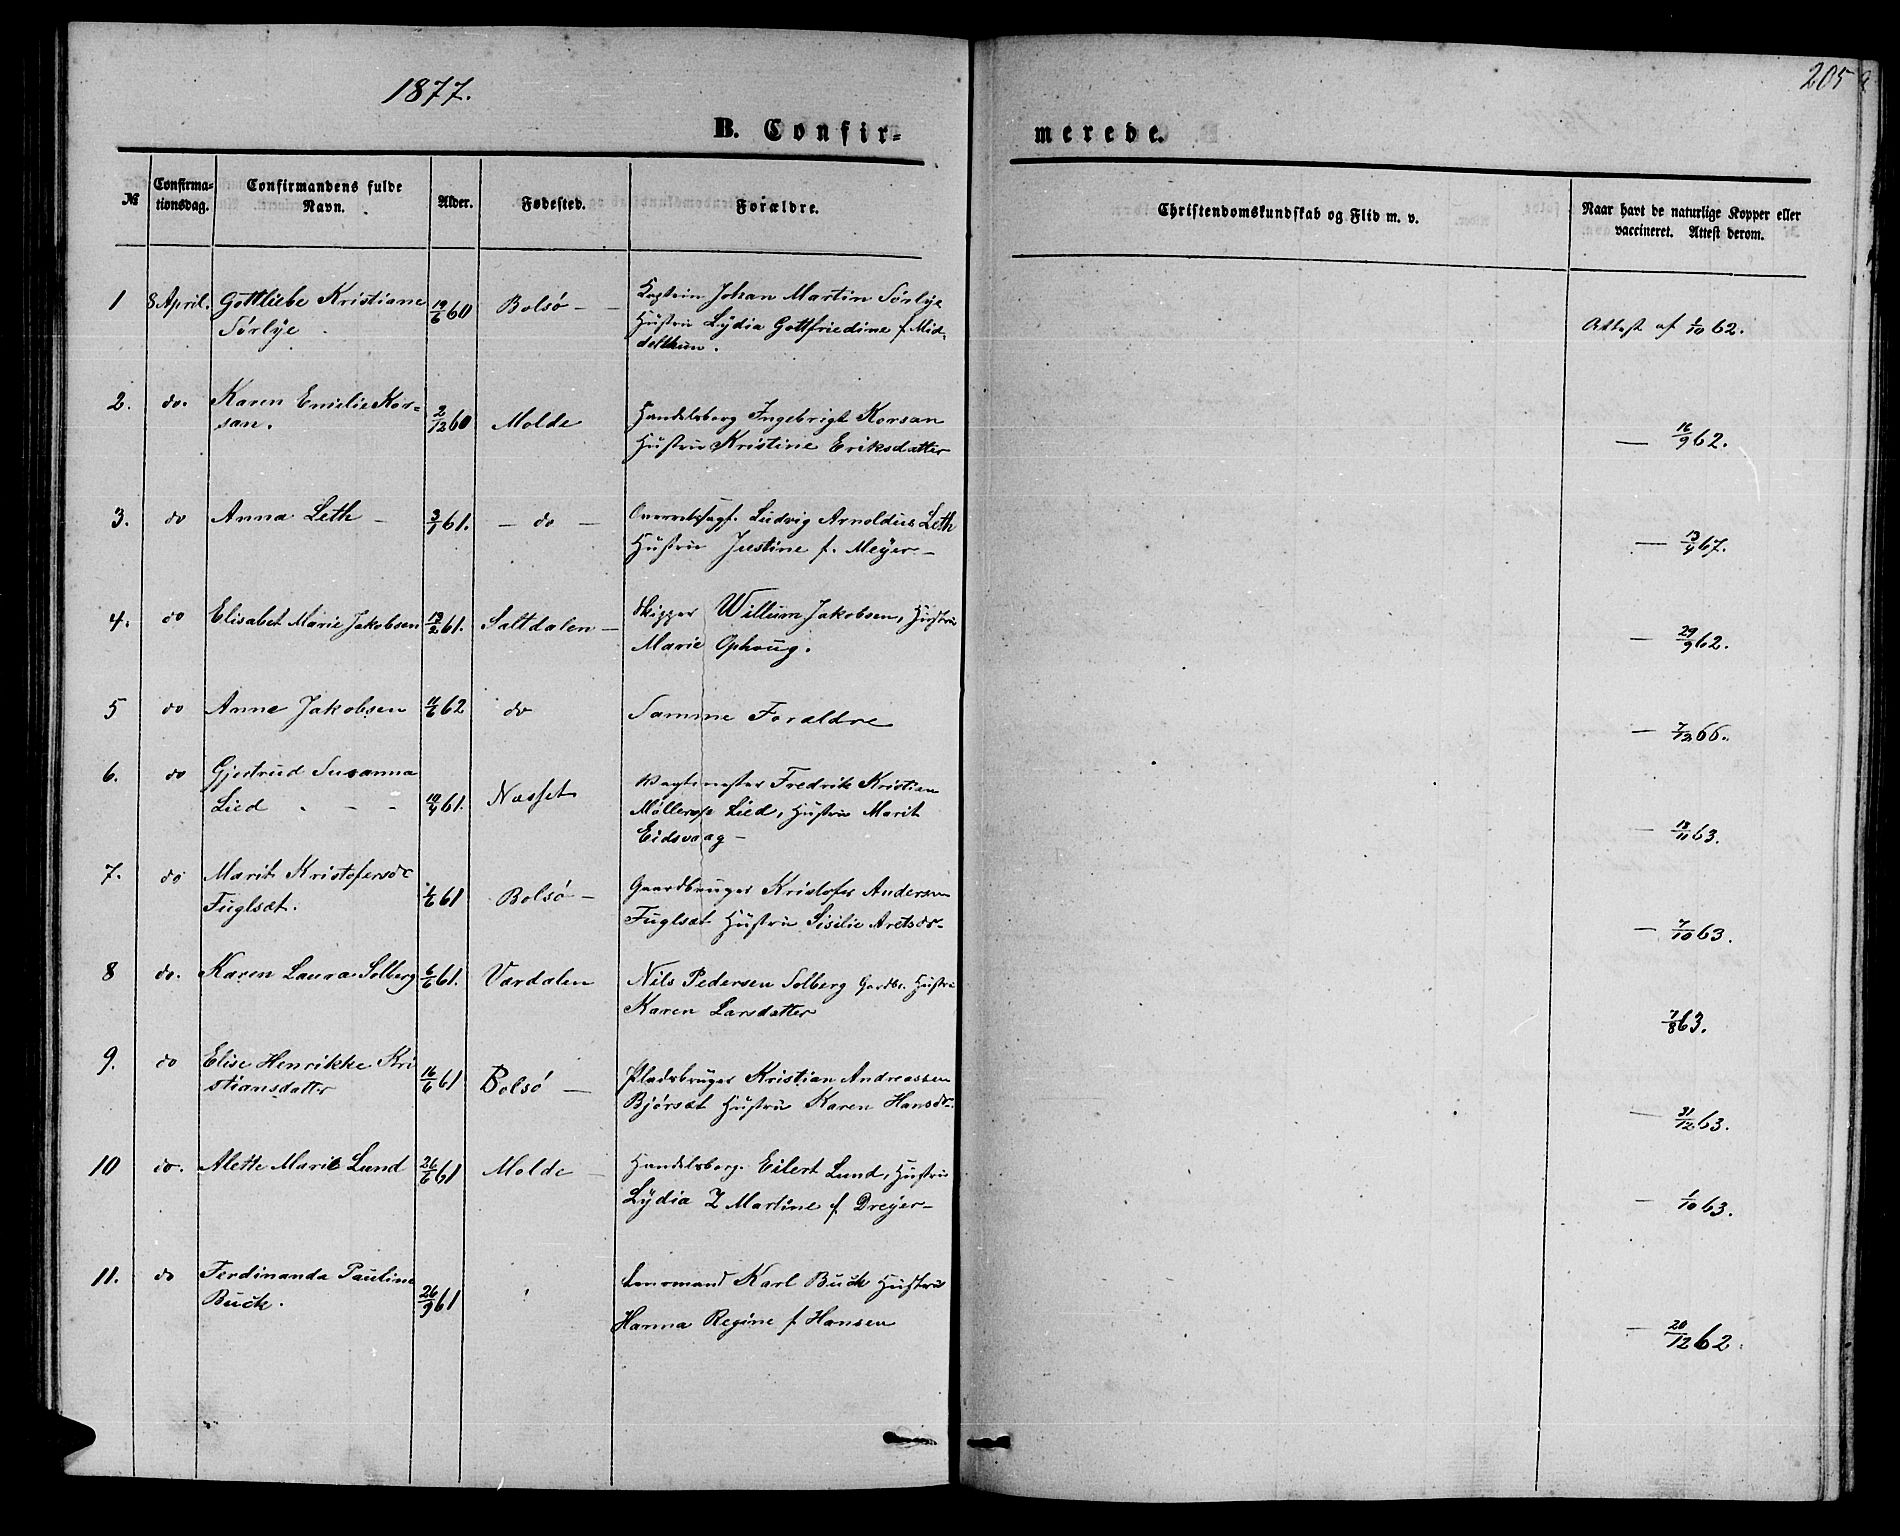 1877.
205
B. Confir-
merede.
№
Confirma-
tionsdag.
Confirmandens fulde
Navn.
Alder.
Fødested.
Forældre.
Christendomskundskab og Flid m. v.
Naar havt de naturlige Kopper eller
vaccineret. Attest derom.
1 8 April. Gottliebe Kristiane 19/6 60 Bolsø – Kaptein Johan Martin Sørlye
Sørlye Hustru Lydia Gottfriedine f. Mid-
delthun. Attest af 1/10 62.
2. do. Karen Emilie Kor- 2/12 60 Molde Handelsborg Ingebrigt Korsan
san. Hustru Kristine Eriksdatter — 16/9 62.
3. do Anna Leth – 3/1 61. – do – Ludvig Arnoldus Leth
Hustru Justine f. Meyer – — 13/9 67.
4. do Elisabet Marie Jakobsen 13/2 61. Saltdalen – Skipper Willum Jakobsen, Hustru
Marie Ophoug. — 29/9 62.
5 do Anne Jakobsen 11/6 62 do Samme Foraldre — 7/12 66.
6. do Gjertrud Susanna
Lied 10/4 61. Næsset Vagtmester Fredrik Kristian
Møllerop Lied, Hustru Marit
Eidsvaag – — 18/11 63.
7. do Marit Kristofersdr
Fuglsæt. 1/6 61 Bolsø – Gaardbruger Kristofer Andersen
Fuglsæt Hustru Sisilie Aretsdr. — 7/10 63.
8 do. Karen Laura Solberg 6/6 61. Værdalen Nils Pedersen Solberg Gardbr. Hustru
Karen Larsdatter 7/8 63.
9. do Elise Henrikke Kri
stiansdatter 16/6 61 Bolsø – Pladsbruger Kristian Andreassen
Bjørsæt Hustru Karen Hansdr. — 31/12 63.
10 do. Alette Marie Lund 26/6 61 Molde – Handelsborg. Eilert Lund, Hustru
Lydia Z Martine f Dreyer – — 1/10 63.
11. do Ferdinanda Pauline
Buck. 26/9 61 Karl Buck Hustru
Hanna Regine f Hansen — 20/12 62.